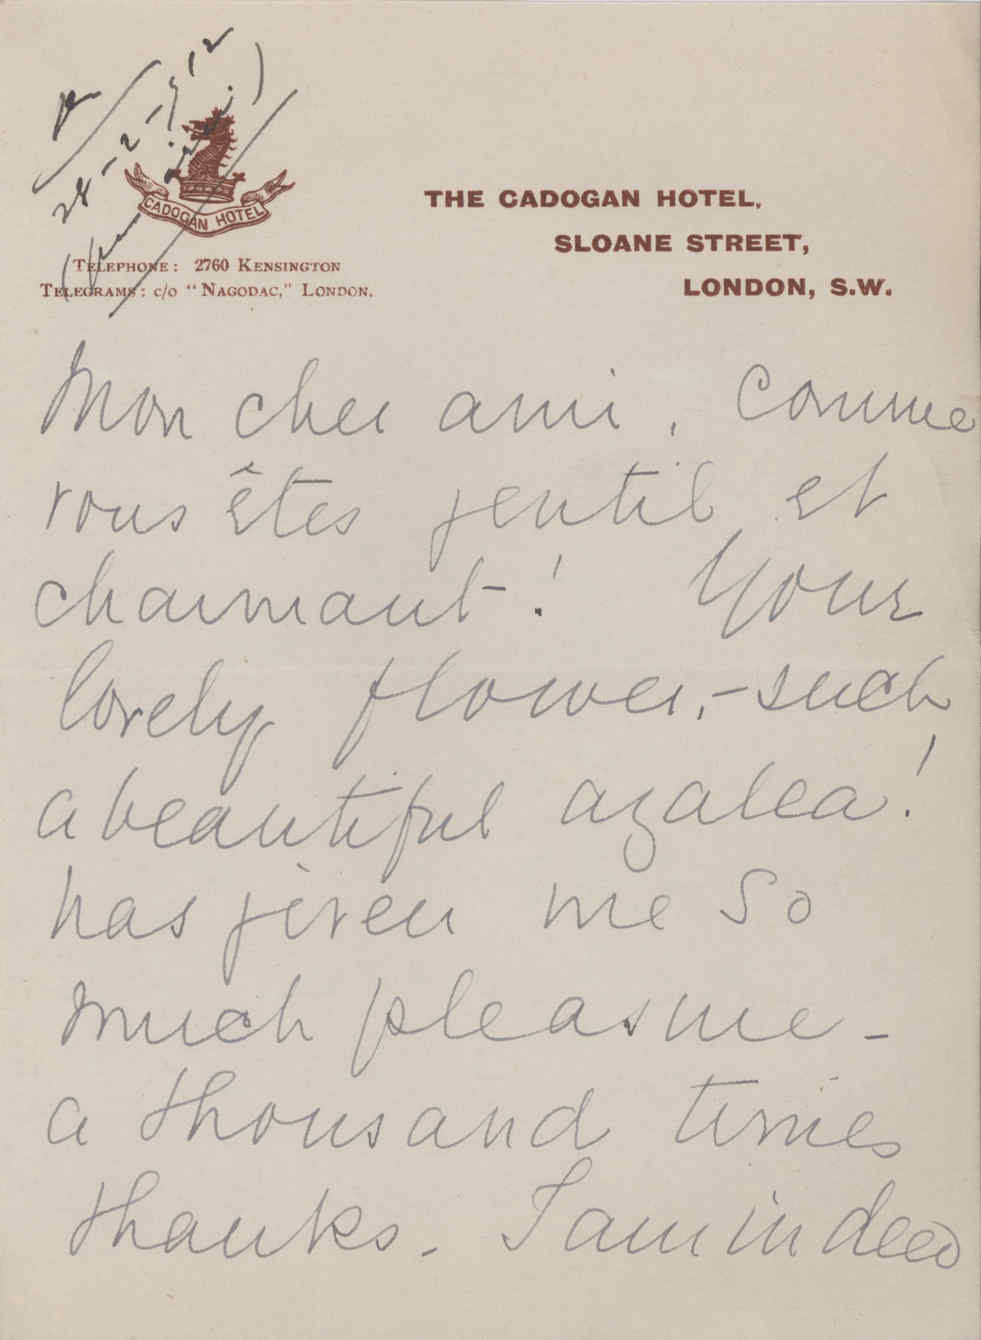 28-2-912
CADOGAN HOTEL
TELEPHONE: 2760 KENSINGTON
TELEGRAMS: c/o "NAGODAC," LONDON.
THE CADOGAN HOTEL,
SLOANE STREET,
LONDON, S.W.
Mon cher ami, Comme
vous êtes gentil et
charmant! Your
lovely flower,-such
a beautiful azalea!
has given me so
much pleasure -
a thousand times
thanks - I am indeed